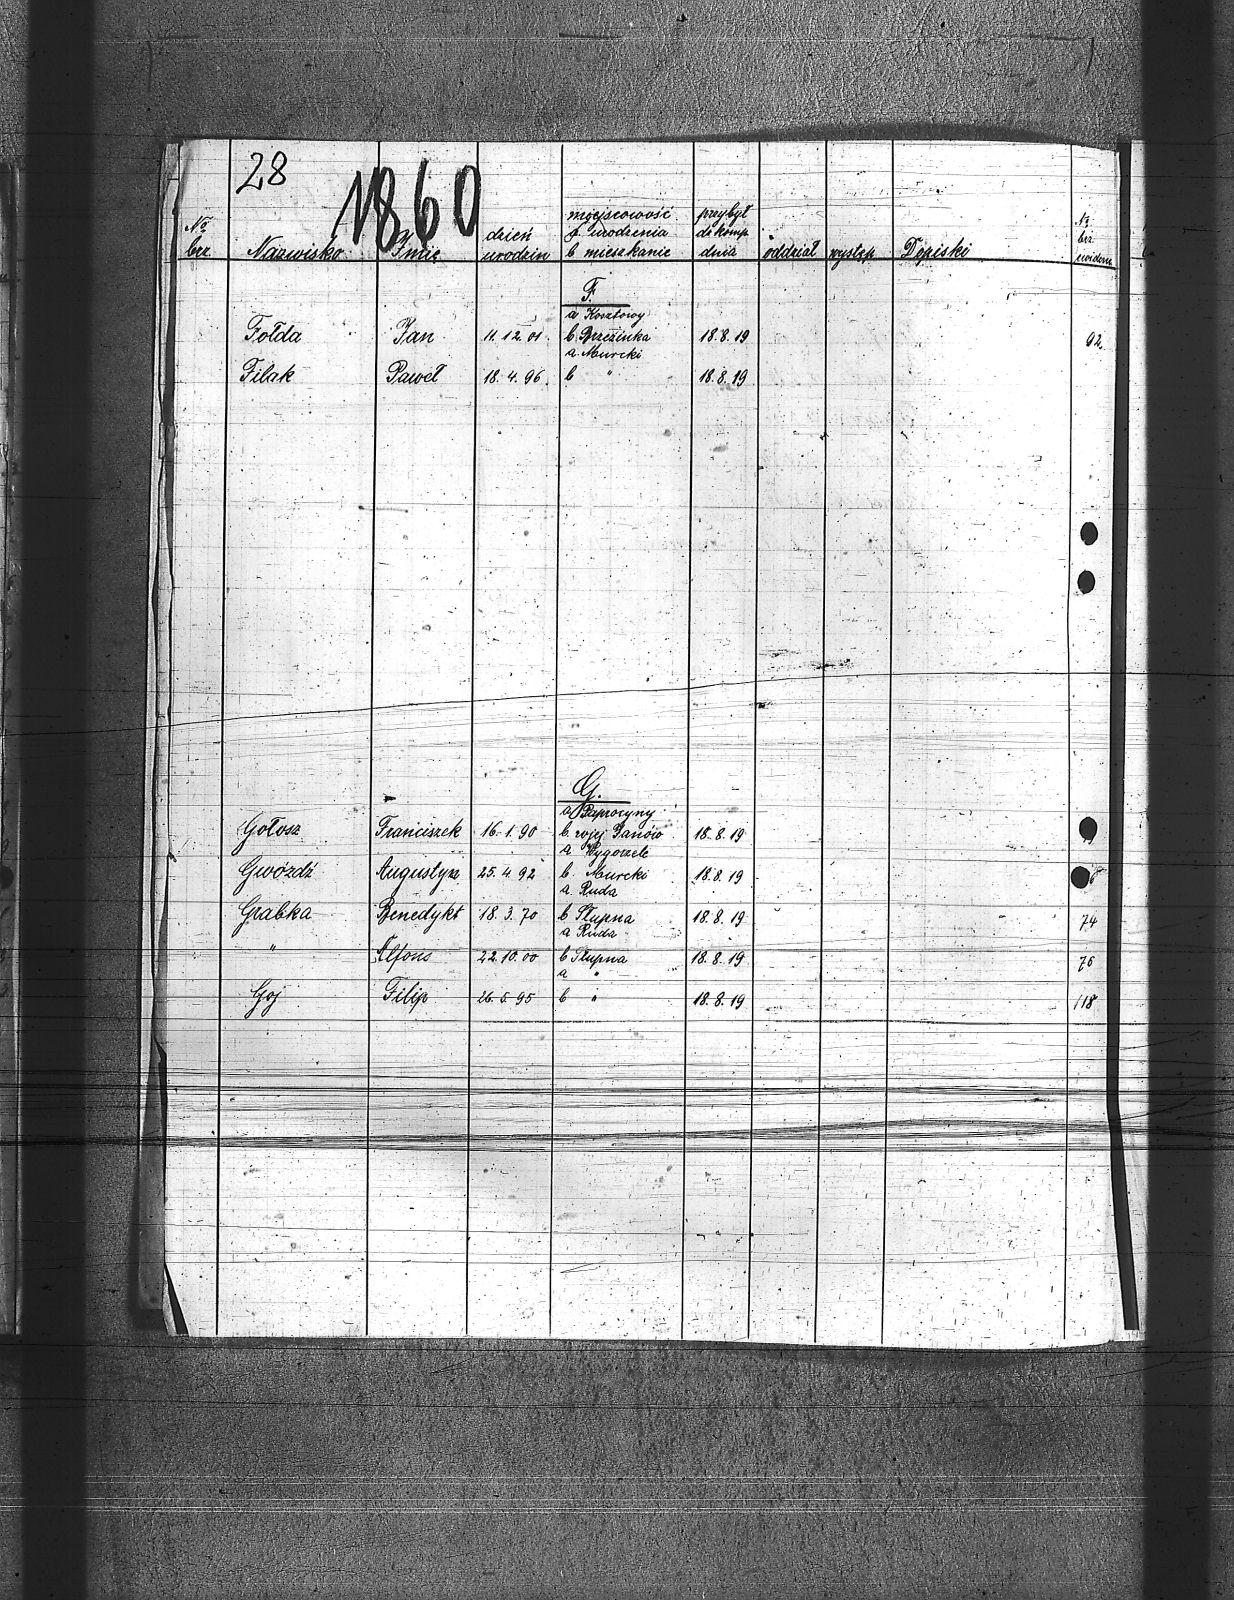 28
1860
No bez. Nazwisko Imię dzień urodzin miejscowość a urodzenia b mieszkanie przybył di komp. dnia oddział występ Dopiski Nr. bież. ewidenc.
F.
a Kosztowy
Fołda Jan 11.12.01. b Brzezinka 18.8.19 92
a Murcki
Filak Paweł 18.4.96. b " 18.8.19
G.
a Paprocyny
Gołosz Franciszek 16.1.90 b. Janów 18.8.19
a Wygorzele
Gwóźdź Augustyn 25.4.92 b. Murcki 18.8.19
a Ruda
Grabka Benedykt 18.3.70 b Słupna 18.8.19 74
a Ruda
" Alfons 22.10.00 b Słupna 18.8.19 76
a "
Goj Filip 26.5.95 b " 18.8.19 118